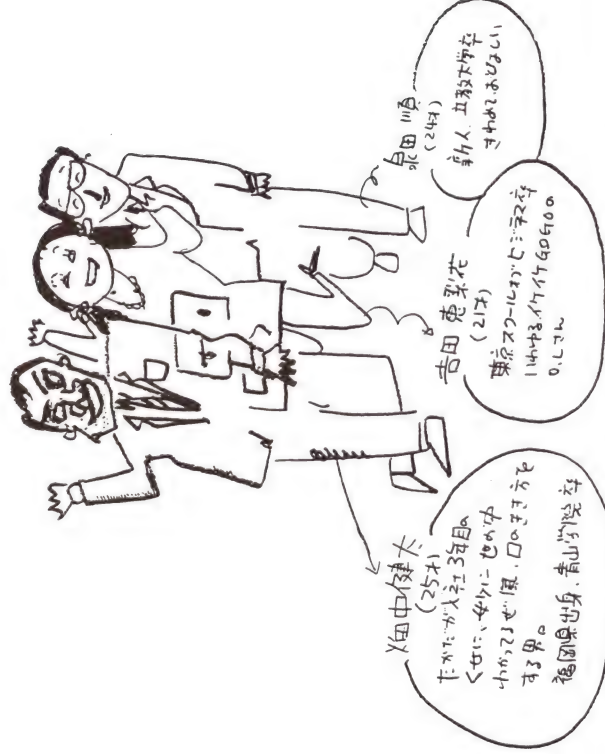 畑中健太
(25才)
たかだが入社3年目の
くせに、妙に世の中
わかってるぜ風、口のきき方を
する男。
福岡県出身、青山学院卒
吉田恵梨花
(21才)
東京スクールオブビジネス卒
いわゆるイケイケGOGOの
O.Lさん
泉田順
(24才)
新人、立教大学卒
きわめておとなしい